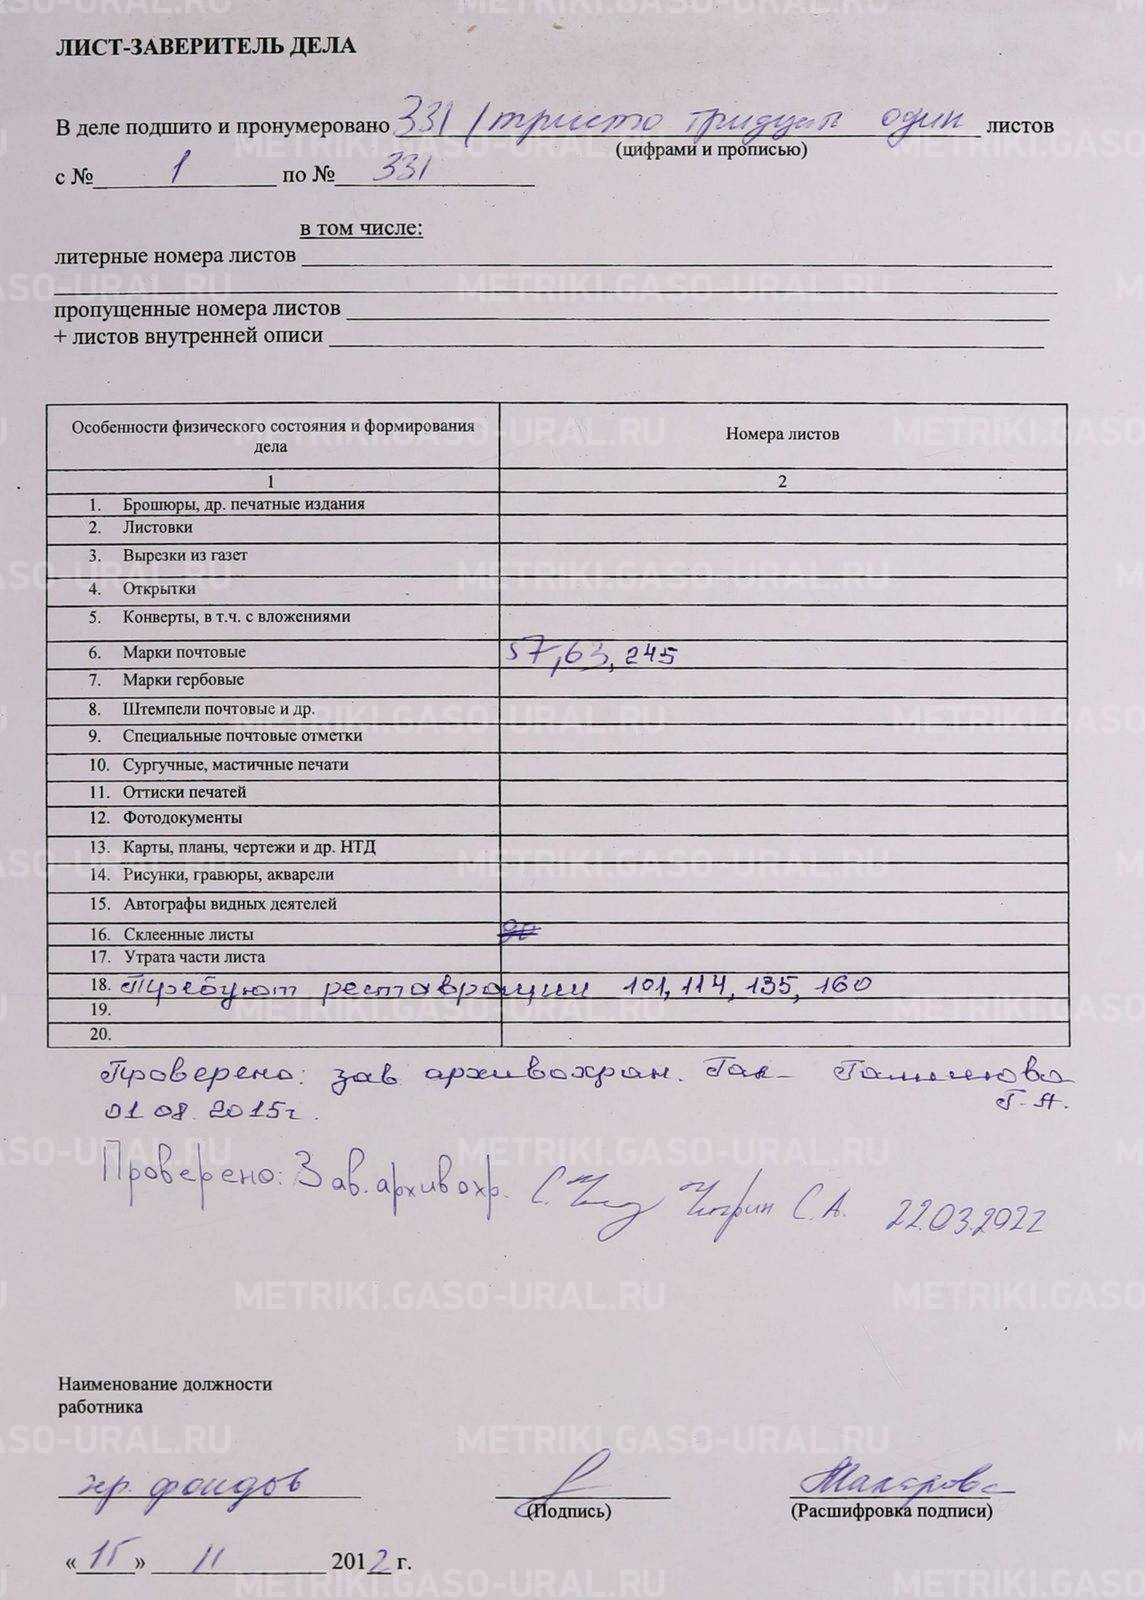 ЛИСТ-ЗАВЕРИТЕЛЬ ДЕЛА
В деле подшито и пронумеровано 331 /триста тридцать один листов
(цифрами и прописью)
с № 1 по № 331
в том числе:
литерные номера листов
пропущенные номера листов
+ листов внутренней описи
Особенности физического состояния и формирования дела Номера листов
1 2
1. Брошюры, др. печатные издания
2. Листовки
3. Вырезки из газет
4. Открытки
5. Конверты, в т.ч. с вложениями
6. Марки почтовые 57, 63, 245
7. Марки гербовые
8. Штемпели почтовые и др.
9. Специальные почтовые отметки
10. Сургучные, мастичные печати
11. Оттиски печатей
12. Фотодокументы
13. Карты, планы, чертежи и др. НТД
14. Рисунки, гравюры, акварели
15. Автографы видных деятелей
16. Склеенные листы
17. Утрата части листа
18. Требуют реставрации 101, 114, 135, 160
19.
20.
Проверено: зав архивохран.
01 08. 2015г. Г.А.
Проверено: Зав. архивохр. С.А. 22.03.2022
Наименование должности
работника
хр. фондов Макарова
(Подпись) (Расшифровка подписи)
«15» 11 2012 г.
METRIKI.GASO-URAL.RU